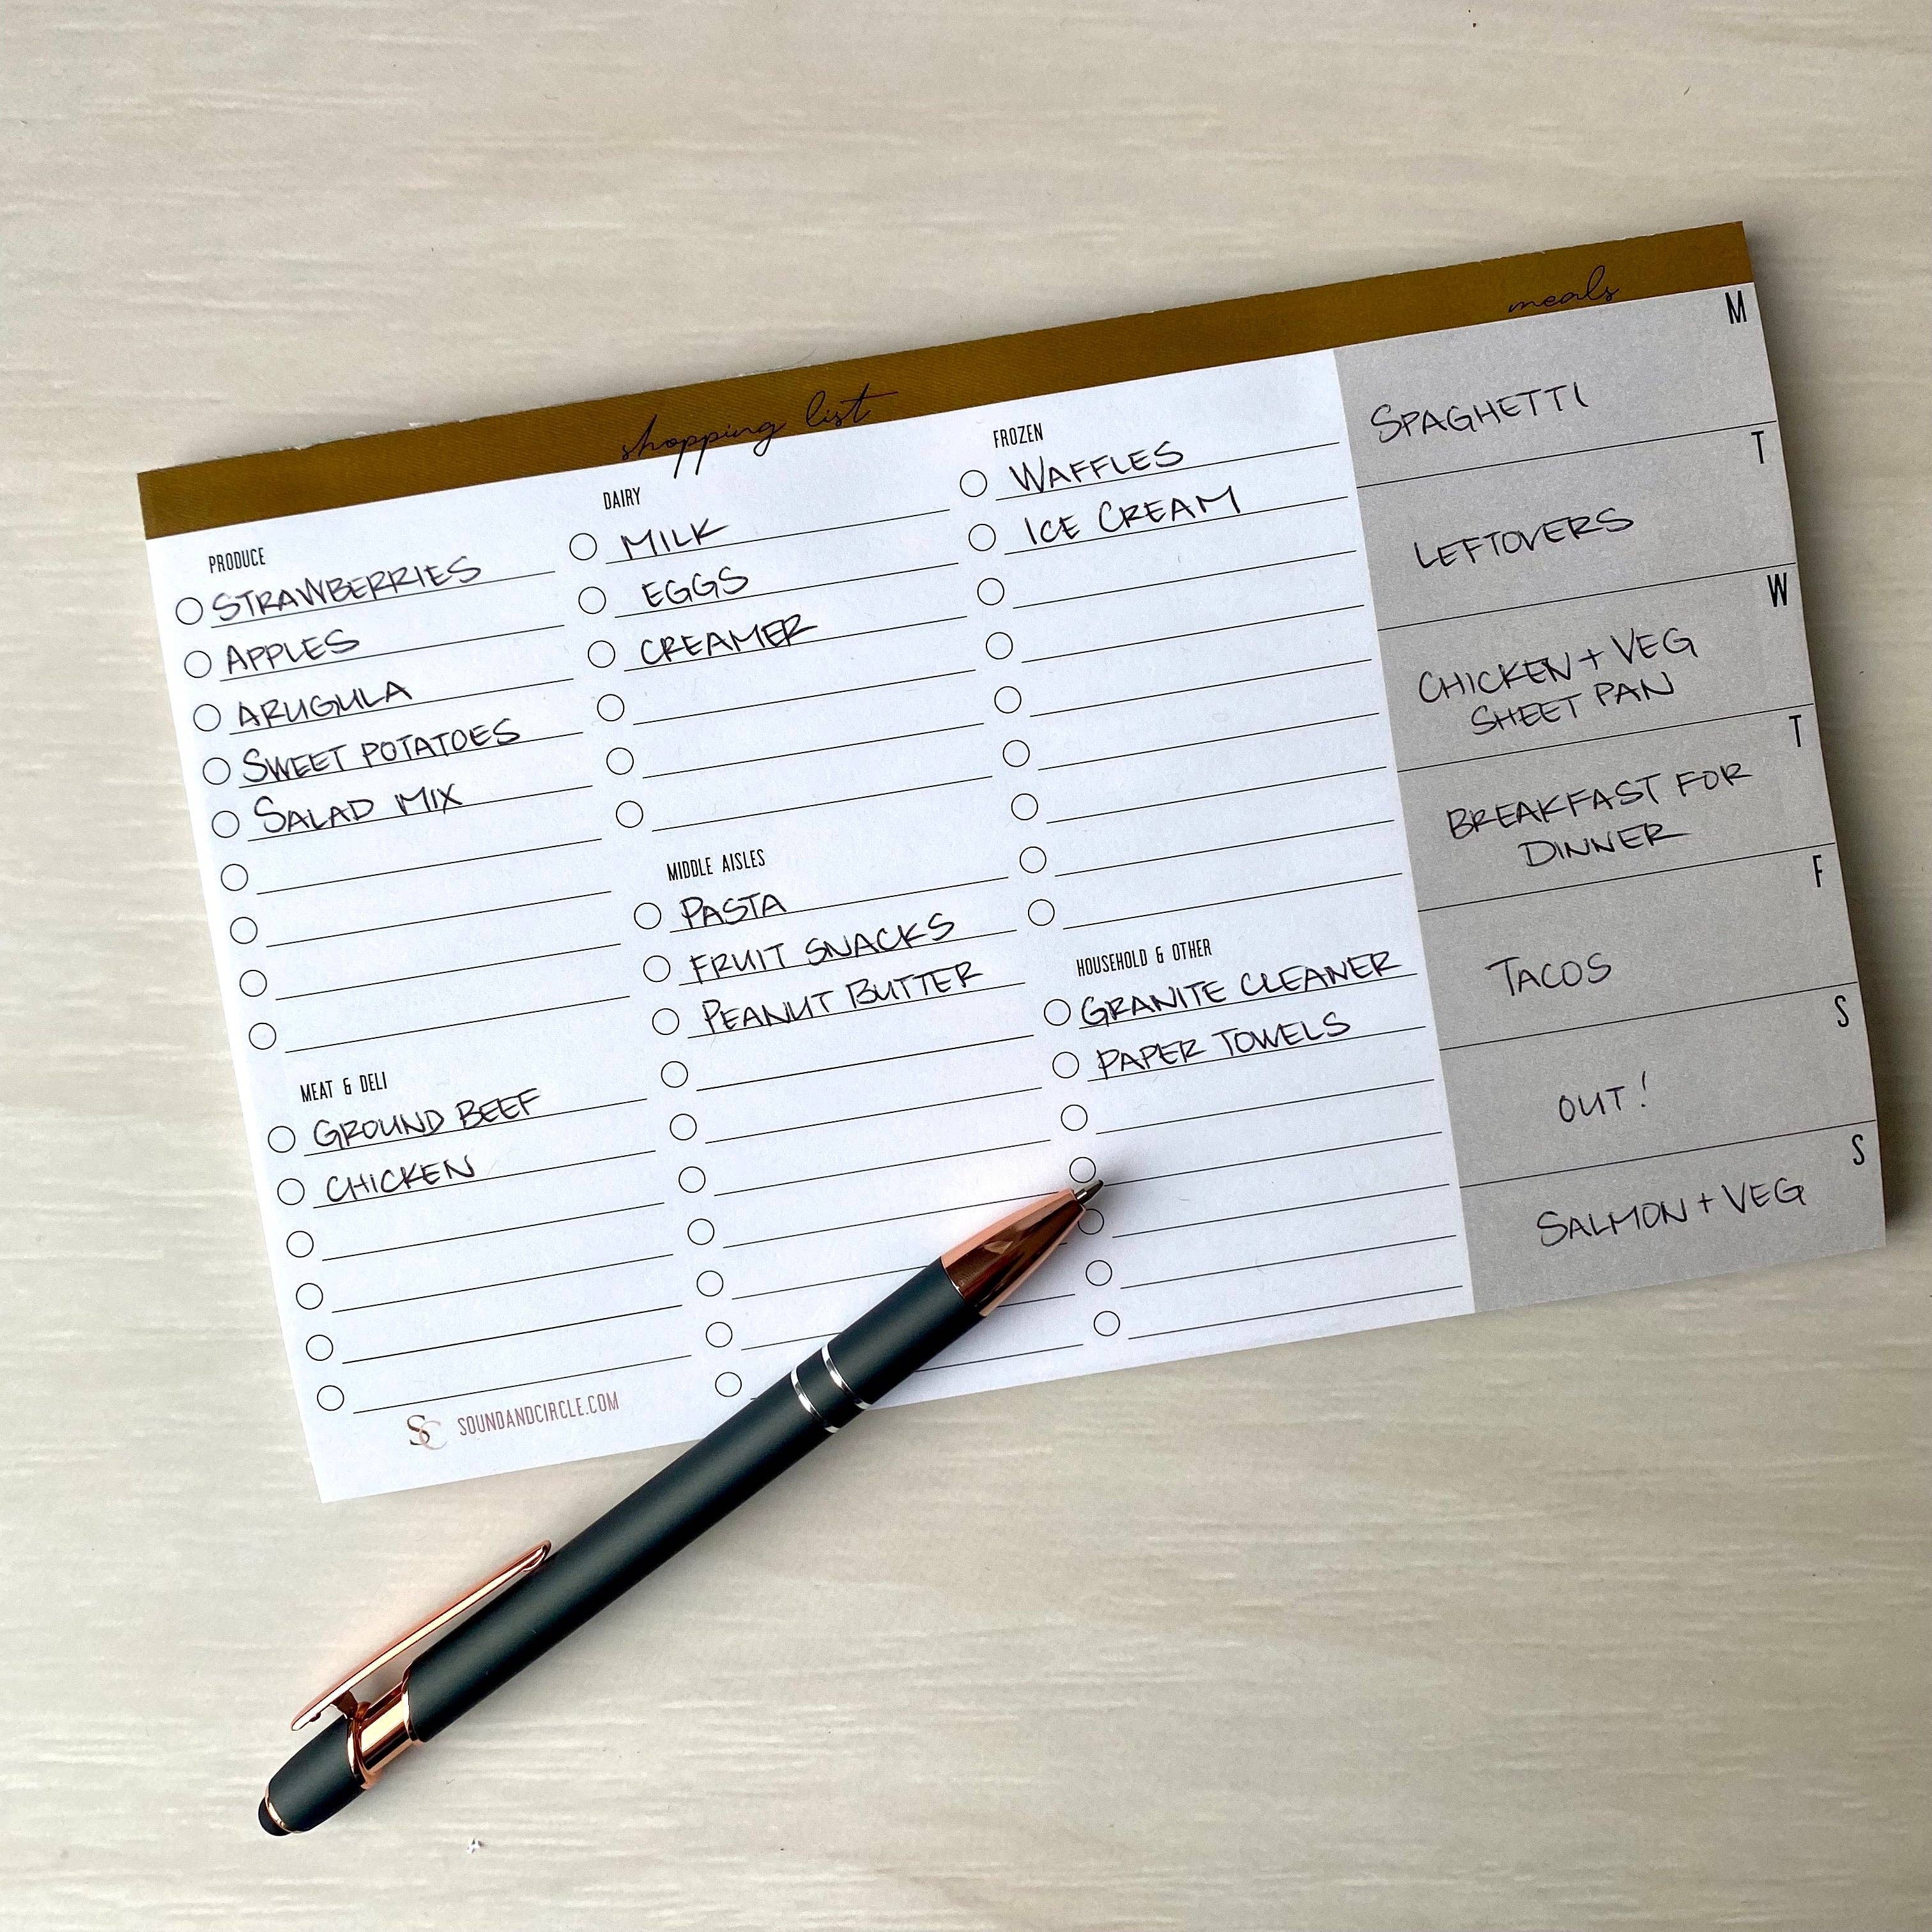 shopping list
meals
PRODUCE
STRAWBERRIES
APPLES
ARUGULA
SWEET POTATOES
SALAD MIX
MEAT & DELI
GROUND BEEF
CHICKEN
DAIRY
MILK
EGGS
CREAMER
MIDDLE AISLES
PASTA
FRUIT SNACKS
PEANUT BUTTER
FROZEN
WAFFLES
ICE CREAM
HOUSEHOLD & OTHER
GRANITE CLEANER
PAPER TOWELS
M
SPAGHETTI
T
LEFTOVERS
W
CHICKEN + VEG
SHEET PAN
T
BREAKFAST FOR
DINNER
F
TACOS
S
OUT!
S
SALMON + VEG
SC SOUNDANDCIRCLE.COM